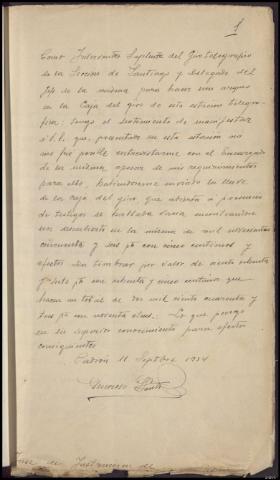 1
Como Interventor Suplente del Giro telegrafico
de la Sección de Santiago y Delegado del
Jefe de la misma para hacer un arqueo
en la Caja del giro de esta estación telegra-
fica: tengo el sentimiento de manifestar
a V.S. que, presentado en esta estación no
me fue posible entrevistarme con el Encargado
de la misma, apesar de mis requerimientos
para ello, habiendome enviado la llave
de la caja del giro que abierta a presencia
de testigos se hallaba vacia acusandose
un descubierto en la misma de mil novecientas
cincuenta y seis pts con cinco centimos y
efectos sin timbrar por valor de ciento ochenta
y siete pts con ochenta y cinco centimos que
hacen un total de dos mil ciento cuarenta y
tres pts con noventa ctms. Lo que pongo
en su superior conocimiento para efectos
consiguientes
Padrón 11 Septbre 1934
Juez de Instruccion de